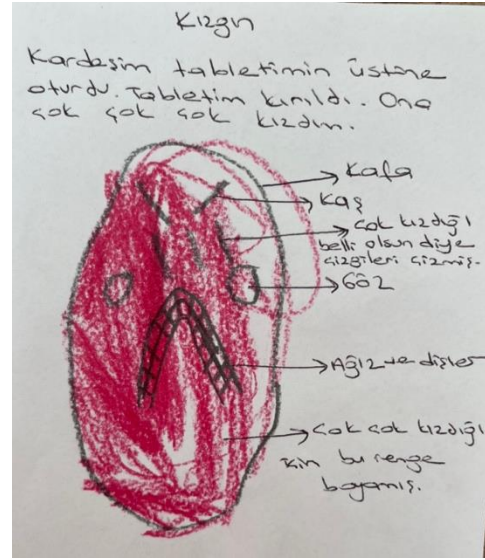 Kızgın
Kardeşim tabletimin üstüne
oturdu. Tabletim kırıldı. Ona
çok çok çok kızdım.
Kafa
Kaş
Çok kızdığı
belli olsun diye
çizgileri çizmiş.
Göz
Ağız ve dişler
Çok çok kızdığı
için bu renge
boyamış.